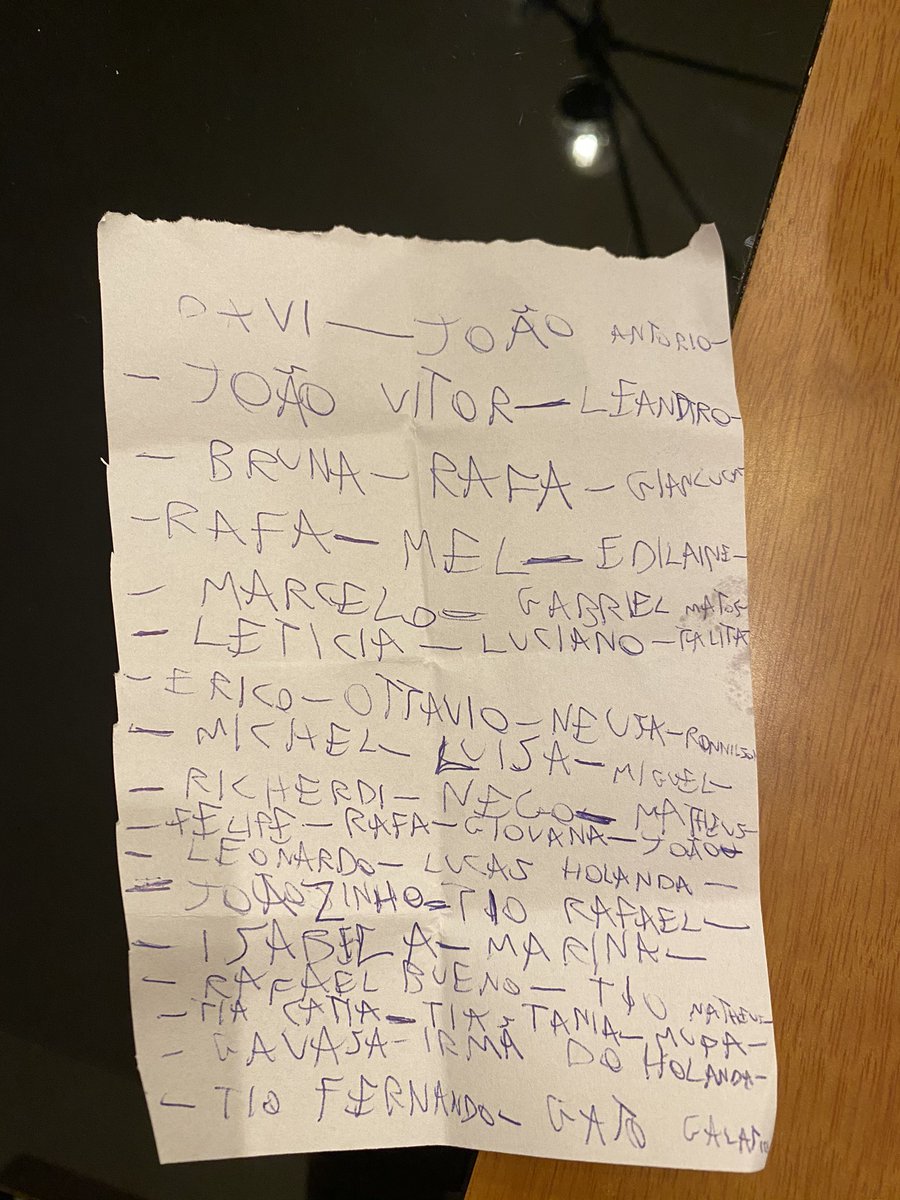 DAVI — JOÃO ANTORIO -
- JOÃO VITOR - LEANDRO -
- BRUNA - RAFA - GIANLUCA
- RAFA - MEL - EDILAINE -
- MARCELO = GABRIEL MATOS
- LETICIA - LUCIANO - TALITA
- ERICO - OTTAVIO - NEUSA - RONNILSO
- MICHEL - LUISA - MIGUEL -
- RICHERDI - NEGO - MATHEUS -
- FELIPE - RAFA - GIOVANA - JOÃO
- LEONARDO - LUCAS HOLANDA -
= JOÃOZINHO = TIO RAFAEL -
- ISABELA - MARINA -
- RAFAEL BUENO - TIO MATHEUS -
- TIA CATIA - TIA TANIA - MUPA -
- GAVASA - IRMÃ DO HOLANDA -
- TIO FERNANDO - GATO